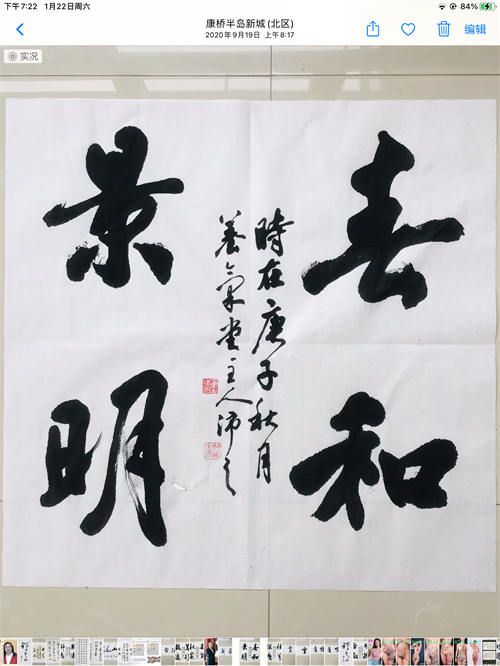 下午7:22 1月22日周六
84%
康桥半岛新城 (北区)
2020年9月19日 上午8:17
编辑
实况
春和
景明
時在庚子秋月
養氣堂主人沛之